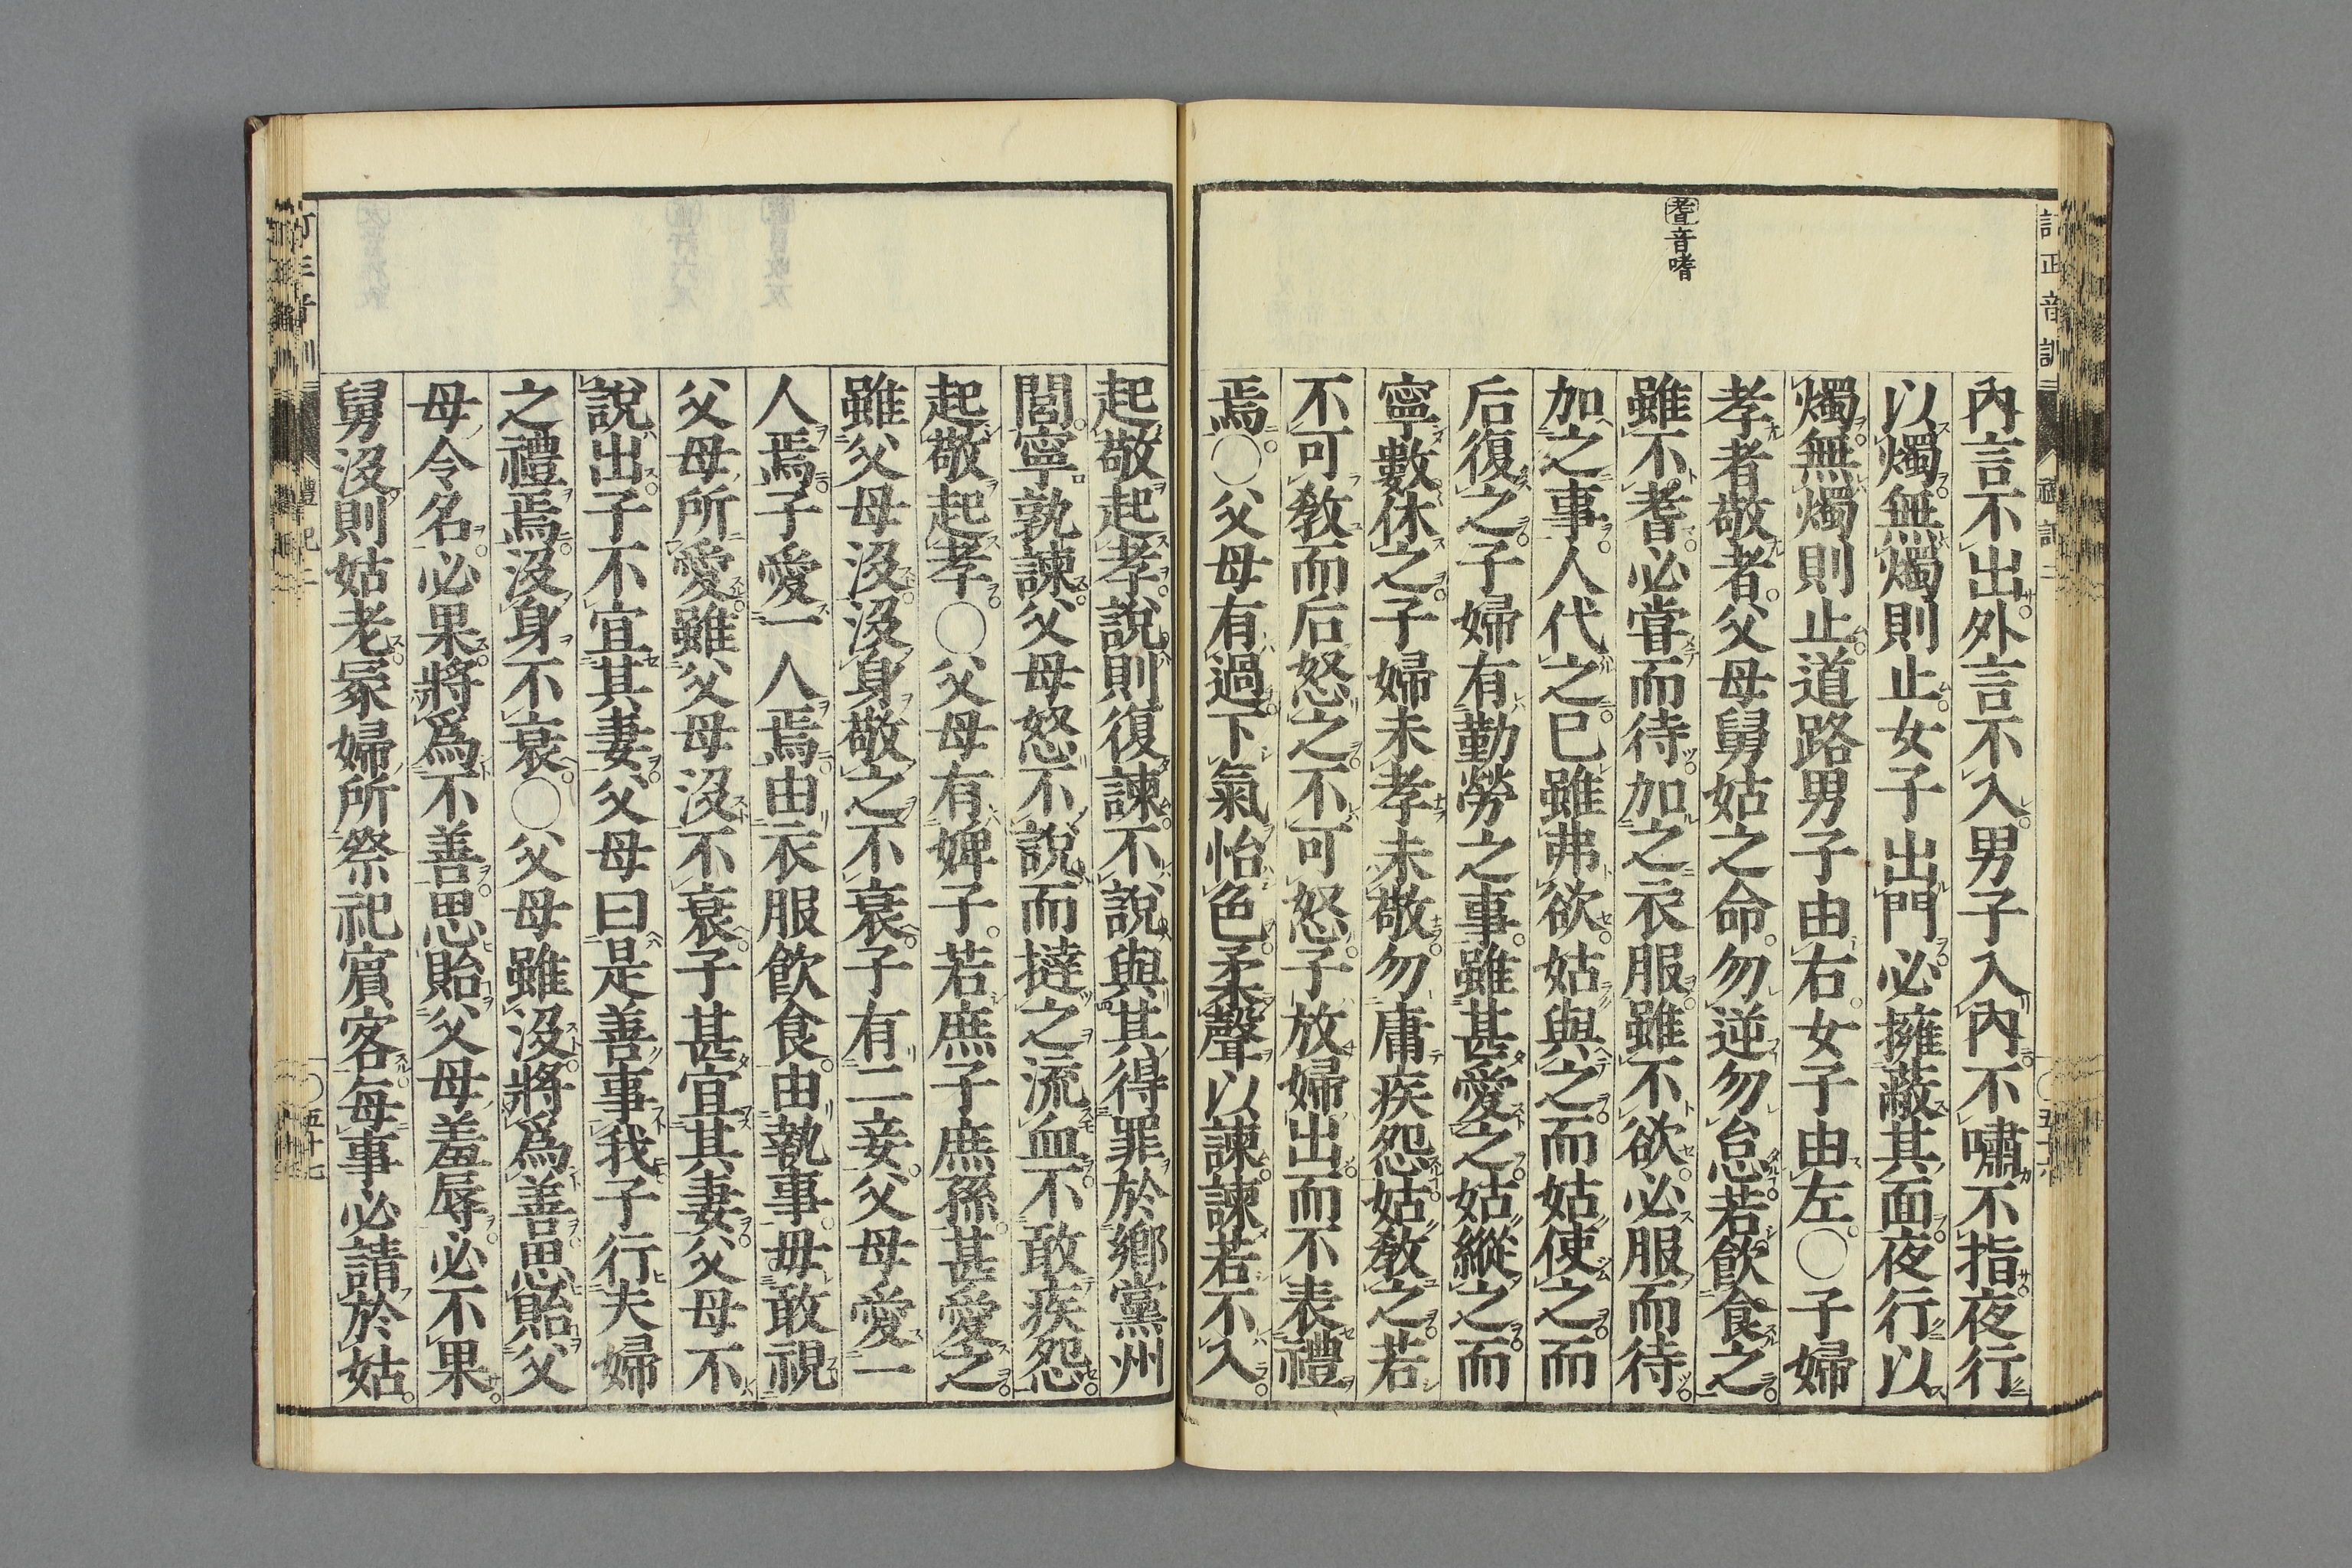 耆音嗜
內言不出外言不入男子入內不嘯不指夜行
以燭無燭則止女子出門必擁蔽其面夜行以
燭無燭則止道路男子由右女子由左○子婦
孝者敬者父母舅姑之命勿逆勿怠若飮食之
雖不耆必嘗而待加之衣服雖不欲必服而待
加之事人代之已雖弗欲姑與之而姑使之而
后復之子婦有勤勞之事雖甚愛之姑縱之而
寧數休之子婦未孝未敬勿庸疾怨姑敎之若
不可敎而后怒之不可怒子放婦出而不表禮
焉○父母有過下氣怡色柔聲以諫諫若不入
起敬起孝說則復諫不說與其得罪於鄉黨州
閭寧孰諫父母怒不說而撻之流血不敢疾怨
起敬起孝○父母有婢子若庶子庶孫甚愛之
雖父母沒沒身敬之不衰子有二妾父母愛一
人焉子愛一人焉由衣服飮食由執事毋敢視
父母所愛雖父母沒不衰子甚宜其妻父母不
說出子不宜其妻父母曰是善事我子行夫婦
之禮焉沒身不衰○父母雖沒將爲善思貽父
母令名必果將爲不善思貽父母羞辱必不果
舅沒則姑老冢婦所祭祀賓客每事必請於姑